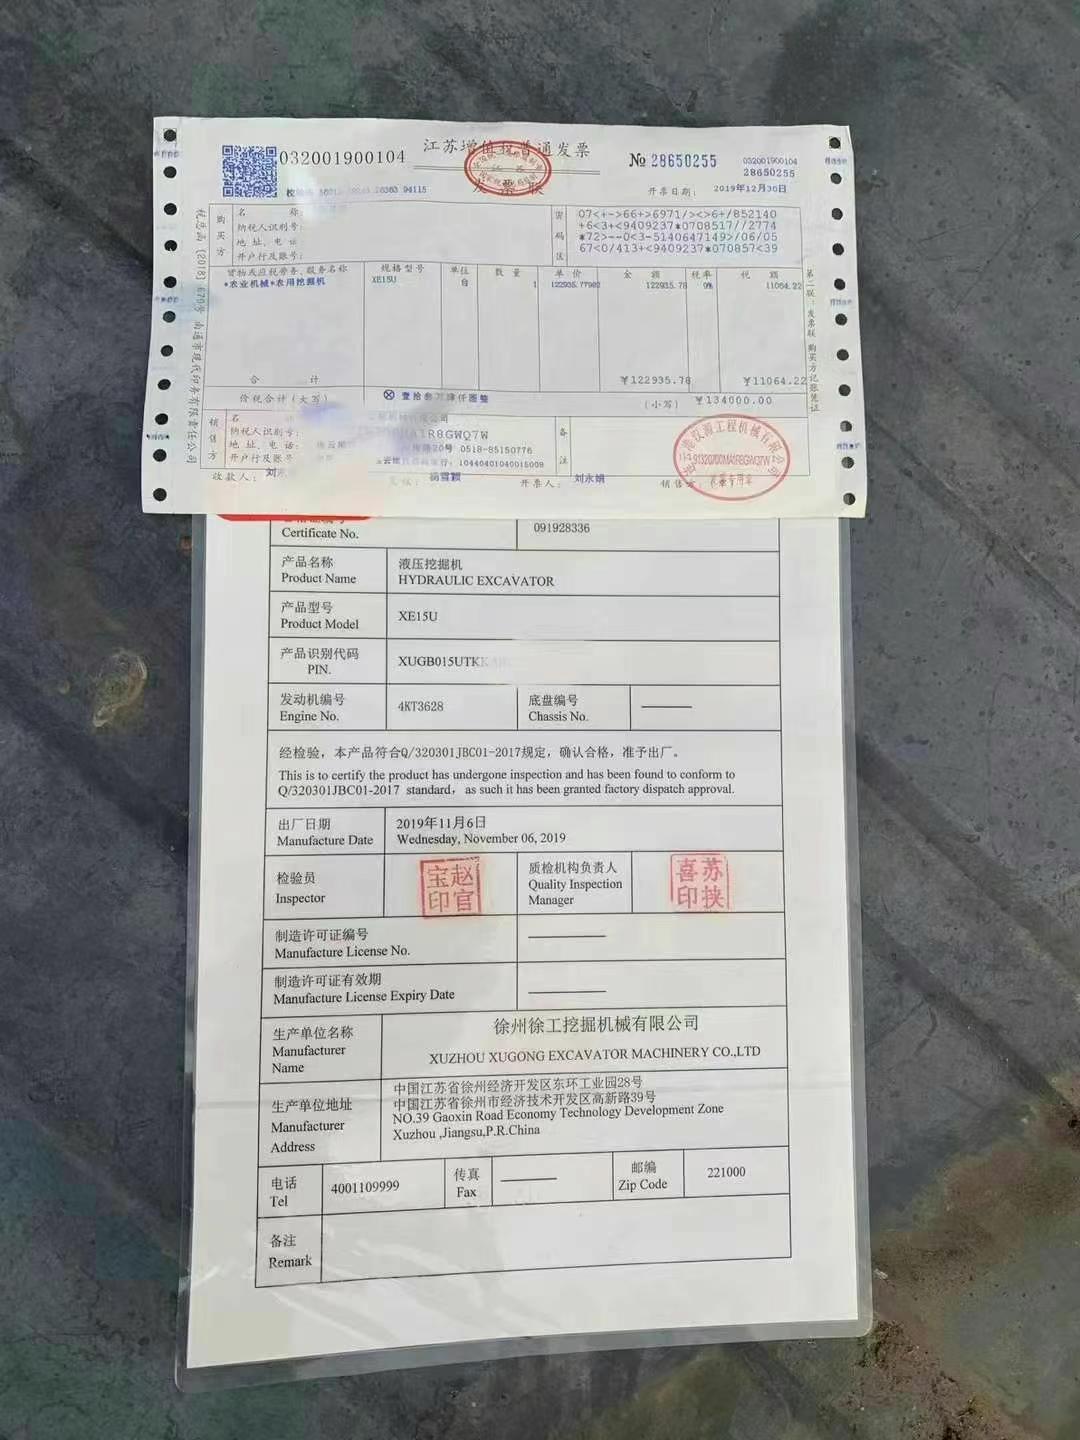 032001900104
江苏增值税普通发票
发票联
№ 28650255
032001900104
28650255
开票日期: 2019年12月30日
94115
税总函〔2018〕670号 南通市现代印务有限责任公司
购买方
名 称:
纳税人识别号:
地 址、电 话:
开户行及账号:
密码区
07<+->66+>6971/><>6+/852140
+6<3+<9409237*0708517//2774
*72>--0<3-5140647149>/06/05
67<0/413+<9409237*070857<39
货物或应税劳务、服务名称 规格型号 单位 数 量 单 价 金 额 税率 税 额
*农业机械*农用挖掘机 XE15U 台 1 122935.77982 122935.78 9% 11064.22
合 计 ￥122935.78 ￥11064.22
价税合计(大写) ⊗壹拾叁万肆仟圆整 (小写) ￥134000.00
第二联:发票联 购买方记账凭证
销售方
名
纳税人识别号: R8GWQ7W
地 址、电 话: 20号 0518-85150776
开户行及账号: 10440401040015009
备注
收款人: 刘永 杨雪颖 开票人: 刘永娟 销售方:
汉源工程机械有限公司
91320700MA1R8GWQ7W
发票专用章
Certificate No. 091928336
产品名称 液压挖掘机
Product Name HYDRAULIC EXCAVATOR
产品型号
Product Model XE15U
产品识别代码
PIN. XUGB015UTKK
发动机编号 底盘编号
Engine No. 4KT3628 Chassis No. ———
经检验，本产品符合Q/320301JBC01-2017规定，确认合格，准予出厂。
This is to certify the product has undergone inspection and has been found to conform to
Q/320301JBC01-2017 standard，as such it has been granted factory dispatch approval.
出厂日期 2019年11月6日
Manufacture Date Wednesday, November 06, 2019
检验员
Inspector
赵官宝印
质检机构负责人
Quality Inspection
Manager
苏挟喜印
制造许可证编号
Manufacture License No. ———
制造许可证有效期
Manufacture License Expiry Date ———
生产单位名称
Manufacturer
Name
徐州徐工挖掘机械有限公司
XUZHOU XUGONG EXCAVATOR MACHINERY CO.,LTD
生产单位地址
Manufacturer
Address
中国江苏省徐州经济开发区东环工业园28号
中国江苏省徐州市经济技术开发区高新路39号
NO.39 Gaoxin Road Economy Technology Development Zone
Xuzhou ,Jiangsu,P.R.China
电话 传真 邮编
Tel 4001109999 Fax ——— Zip Code 221000
备注
Remark